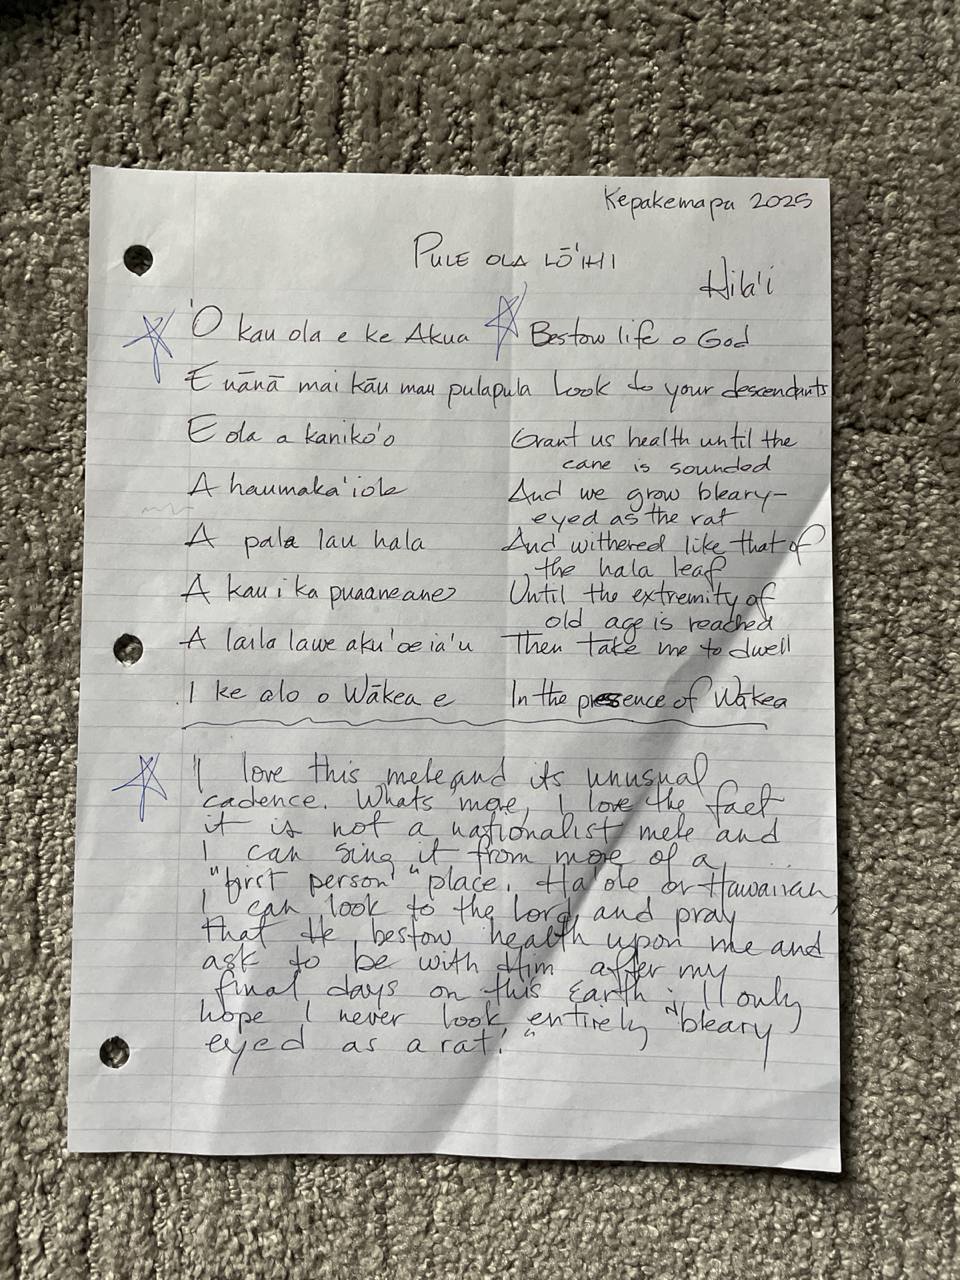 Kepakemapa 2025
PULE OLA LŌ'IHI
Hila'i
'O kau ola e ke Akua Bestow life o God
E nānā mai kāu mau pulapula Look to your descendants
E ola a kaniko'o Grant us health until the
cane is sounded
A haumaka'iole And we grow bleary-
eyed as the rat
A pala lau hala And withered like that of
the hala leaf
A kau i ka puaaneane Until the extremity of
old age is reached
A laila lawe aku 'oe ia'u Then take me to dwell
I ke alo o Wākea e In the presence of Wākea
I love this mele and its unusual
cadence. Whats more, I love the fact
it is not a nationalist mele and
I can sing it from more of a
"first person" place. Haole or Hawaiian,
I can look to the Lord and pray
that He bestow health upon me and
ask to be with Him after my
final days on this Earth. I only
hope I never look entirely "bleary
eyed as a rat."